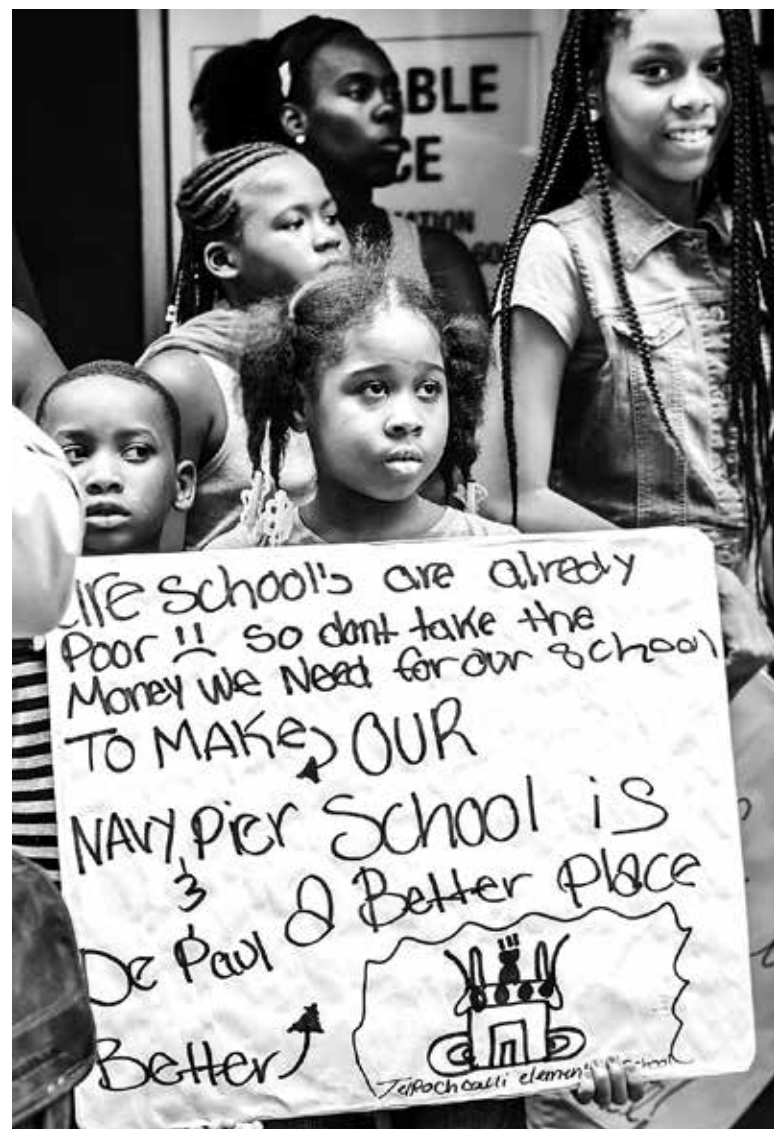 BLE
CE
ATION
are school's are alredy
Poor !! so dont take the
Money we Need for our school
TO MAKE OUR
NAVY Pier School is
&
De Paul a Better Place
Better
Telpochcalli elementary School